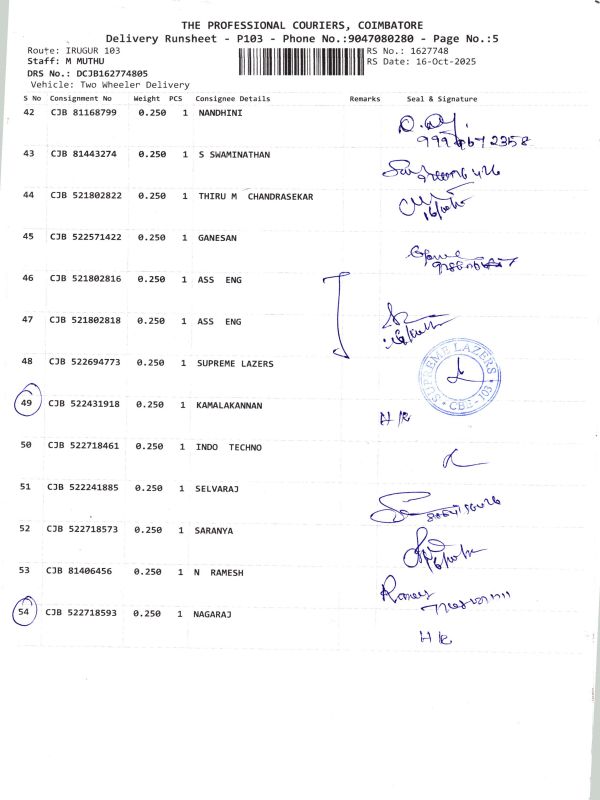 THE PROFESSIONAL COURIERS, COIMBATORE
Delivery Runsheet - P103 - Phone No.:9047080280 - Page No.:5
Route: IRUGUR 103 RS No.: 1627748
Staff: M MUTHU RS Date: 16-Oct-2025
DRS No.: DCJB162774805
Vehicle: Two Wheeler Delivery
S No Consignment No Weight PCS Consignee Details Remarks Seal & Signature
42 CJB 81168799 0.250 1 NANDHINI
43 CJB 81443274 0.250 1 S SWAMINATHAN
44 CJB 521802822 0.250 1 THIRU M CHANDRASEKAR
45 CJB 522571422 0.250 1 GANESAN
46 CJB 521802816 0.250 1 ASS ENG
47 CJB 521802818 0.250 1 ASS ENG
48 CJB 522694773 0.250 1 SUPREME LAZERS
SUPREME LAZERS
CBE-103
49 CJB 522431918 0.250 1 KAMALAKANNAN
H/R
50 CJB 522718461 0.250 1 INDO TECHNO
51 CJB 522241885 0.250 1 SELVARAJ
52 CJB 522718573 0.250 1 SARANYA
53 CJB 81406456 0.250 1 N RAMESH
54 CJB 522718593 0.250 1 NAGARAJ
H/R